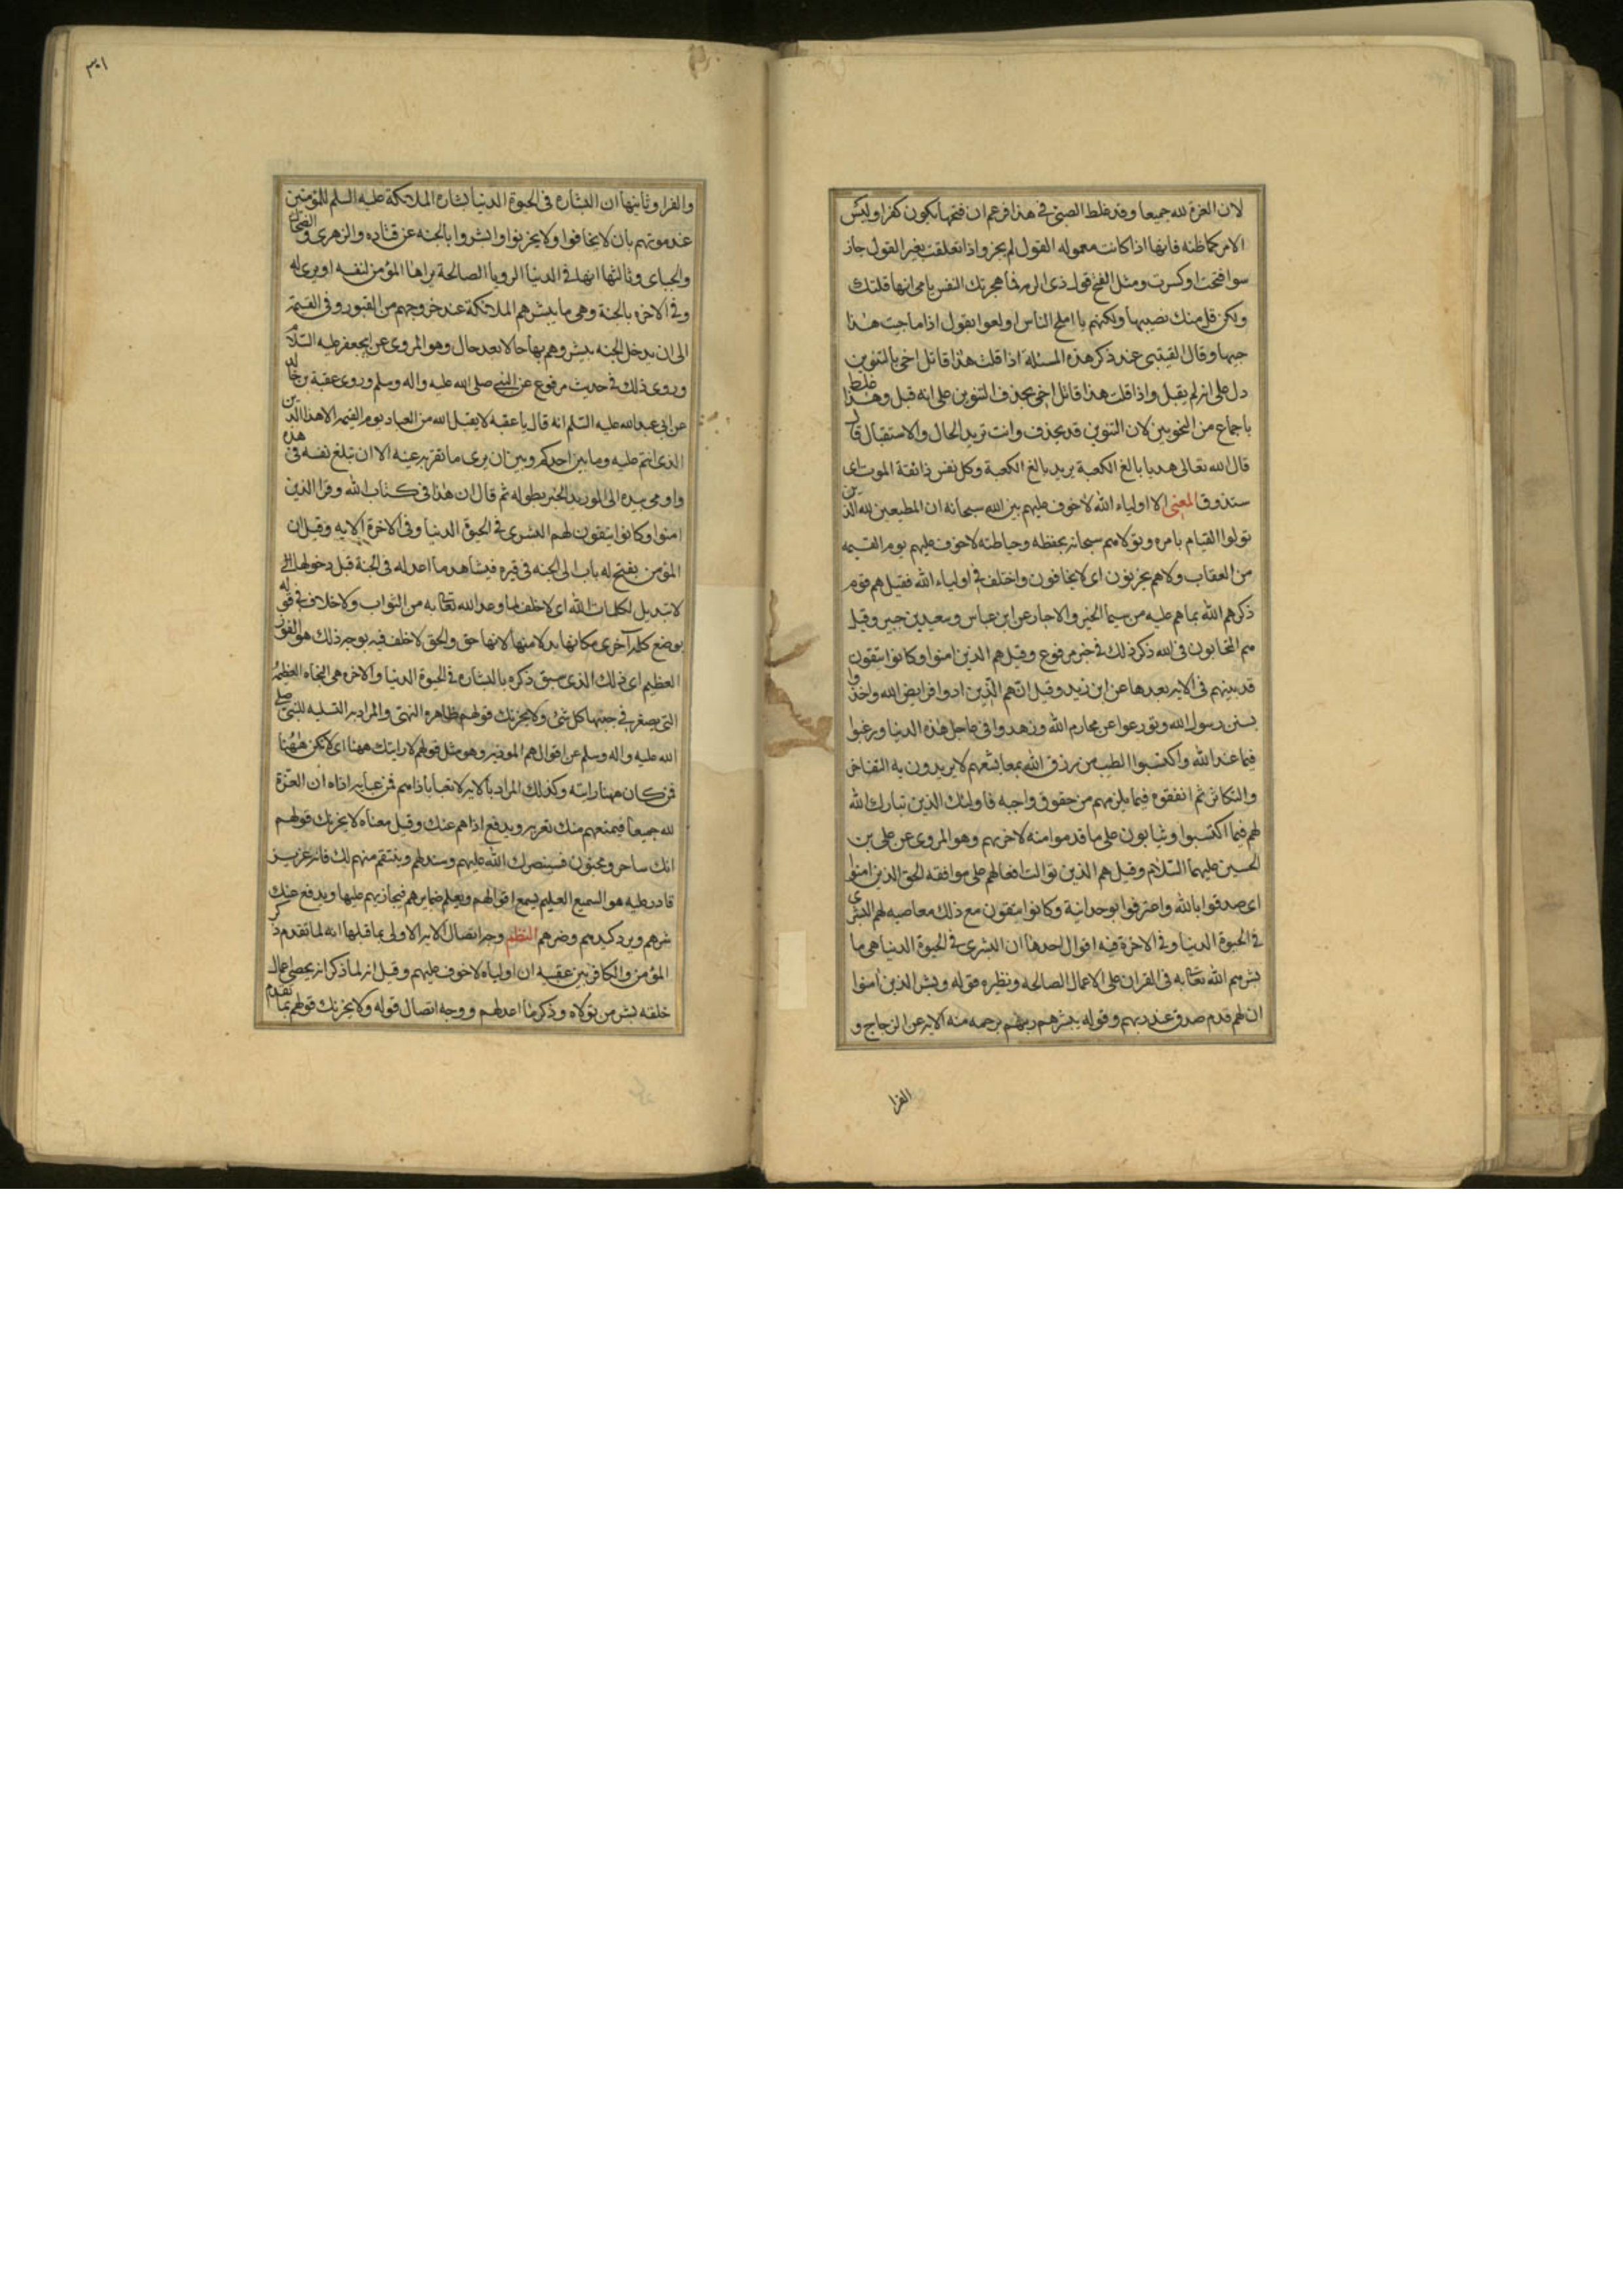 لان العزة لله جميعا وقد غلط القتيبي في هذا فزعم ان فتحها يكون كفرا وليس
الامر كما ظنه فانها اذا كانت معموله القول لم يجز واذا تعلقت بغير القول جاز
سوا فتحت او كسرت ومثل الفتح قول ذي الرمه فما هجرتك النفس يا مي انها قلتك
ولكن قل منك نصيبها ولكنهم يا املح الناس اولعوا بقول اذا ما جئت هذا
حبيبها وقال القتيبي عند ذكر هذه المسئلة اذا قلت هذا قاتل اخي بالتنوين
دل على انه لم يقتل واذا قلت هذا قاتل اخي بحذف التنوين على انه قتل وهذا غلط
باجماع من النحويين لان التنوين قد يحذف وانت تريد الحال والاستقبال قال
قال الله تعالى هديا بالغ الكعبة يريد بالغ الكعبة وكل نفس ذائقة الموت اى
ستذوق المعنى الا ان اولياء الله لا خوف عليهم بين الله سبحانه ان المطيعين لله الذين
تولوا القيام بامره وتولاهم سبحانه بحفظه وحياطته لا خوف عليهم يوم القيمه
من العقاب ولا هم يحزنون اى لا يخافون واختلف في اولياء الله فقيل هم قوم
ذكرهم الله بما هم عليه من سيما الخير والاخبات عن ابن عباس وسعيد بن جبير وقيل
هم المتحابون في الله ذكر ذلك في خبر مرفوع وقيل هم الذين امنوا وكانوا يتقون
قد بينهم في الايه بعدها عن ابن زيد وقيل انهم الذين ادوا فرايض الله واخذوا
بسنن رسول الله وتورعوا عن محارم الله وزهدوا في عاجل هذه الدنيا ورغبوا
فيما عند الله واكتسبوا الطيب من رزق الله بمعايشهم لا يريدون به التفاخر
والتكاثر ثم انفقوه فيما يلزمهم من حقوق واجبه فاولئك الذين تبارك الله
لهم فيما اكتسبوا ويثابون على ما قدموا منه لاخرتهم وهو المروى عن على بن
الحسين عليهما السّلام وقيل هم الذين توالت افعالهم على موافقه الحق الذين امنوا
اى صدقوا بالله واعترفوا بوحدانية وكانوا يتقون مع ذلك معاصيه لهم البشرى
في الحيوة الدنيا وفي الاخرة فيه اقوال احدها ان البشرى في الحيوة الدنيا هي ما
بشرهم الله تعالى به في القران على الاعمال الصالحه ونظيره قوله وبشر الذين امنوا
ان لهم قدم صدق عند ربهم وقوله يبشرهم ربهم برحمه منه الايه عن الزجاج و
الفرا
٣٠١
والفرا وثانيها ان البشاره في الحيوة الدنيا بشاره الملائكة عليه السلم للمؤمنين
عند موتهم بان لا يخافوا ولا يحزنوا وابشروا بالجنه عن قتاده والزهرى والضحاك
والجباى وثالثها انها في الدنيا الرويا الصالحة يراها المؤمن لنفسه او يرى له
وفي الاخره بالجنة وهي ما يبشرهم الملائكة عند خروجهم من القبور وفي القيمة
الى ان يدخل الجنه يبشروهم بها حالا بعد حال وهو المروى عن ابي جعفر عليه السّلام
وروى ذلك في حديث مرفوع عن النبي صلى الله عليه واله وسلم وروى عقبة بن خالد
عن ابي عبد الله عليه السّلم انه قال يا عقبه لا يقبل الله من العباد يوم القيمه الا هذا الدين
الذى انتم عليه وما بين احدكم وبين ان يرى ما تقر به عينه الا ان تبلغ نفسه هذه
واومى بيده الى الوريد الخبر بطوله ثم قال ان هذا في كتاب الله وقرا الذين
امنوا وكانوا يتقون لهم البشرى في الحيوة الدنيا وفي الاخرة الايه وقيل ان
المؤمن يفتح له باب الى الجنه في قبره فيشاهد ما اعد له في الجنة قبل دخولها
لا تبديل لكلمات الله اى لا خلف لما وعد الله تعالى به من الثواب ولا خلاف في قوله
بوضع كلمة اخرى مكانها بدلا منها لانها حق والحق لا خلف فيه بوجه ذلك هو الفوز
العظيم اى ذلك الذى سبق ذكره بالبشاره في الحيوة الدنيا والاخره هي النجاه العظيمه
التي يصغر في جنبها كل شئ ولا يحزنك قولهم ظاهره النهى والمراد به التسليه للنبى صلى
الله عليه واله وسلم عن اقوالهم الموذيه وهو مثل قولهم لا رايتك ههنا اى لا تكن ههنا
فمن كان ههنا رايته وكذلك المراد بالايه لا تعبا باذاهم فمن عبا به اذاه ان العزّة
لله جميعا فيمنعهم منك بعزته ويدفع اذاهم عنك وقيل معناه لا يحزنك قولهم
انك ساحر ومجنون فسينصرك الله عليهم وسيذلهم وينتقم منهم لك فانه عزيز
قادر عليه هو السميع العليم يسمع اقوالهم ويعلم ضمايرهم فيجازيهم عليها ويدفع عنك
شرهم ويرد كيدهم وضرهم النظم وجه اتصال الايه الاولى بما قبلها انه لما تقدم ذكر
المؤمن والكافر بين عقيبه ان اولياه لا خوف عليهم وقيل انه لما ذكر انه يحصى اعمال
خلقه بشر من تولاه وذكر ما اعد لهم ووجه اتصال قوله ولا يحزنك قولهم بما تقدم